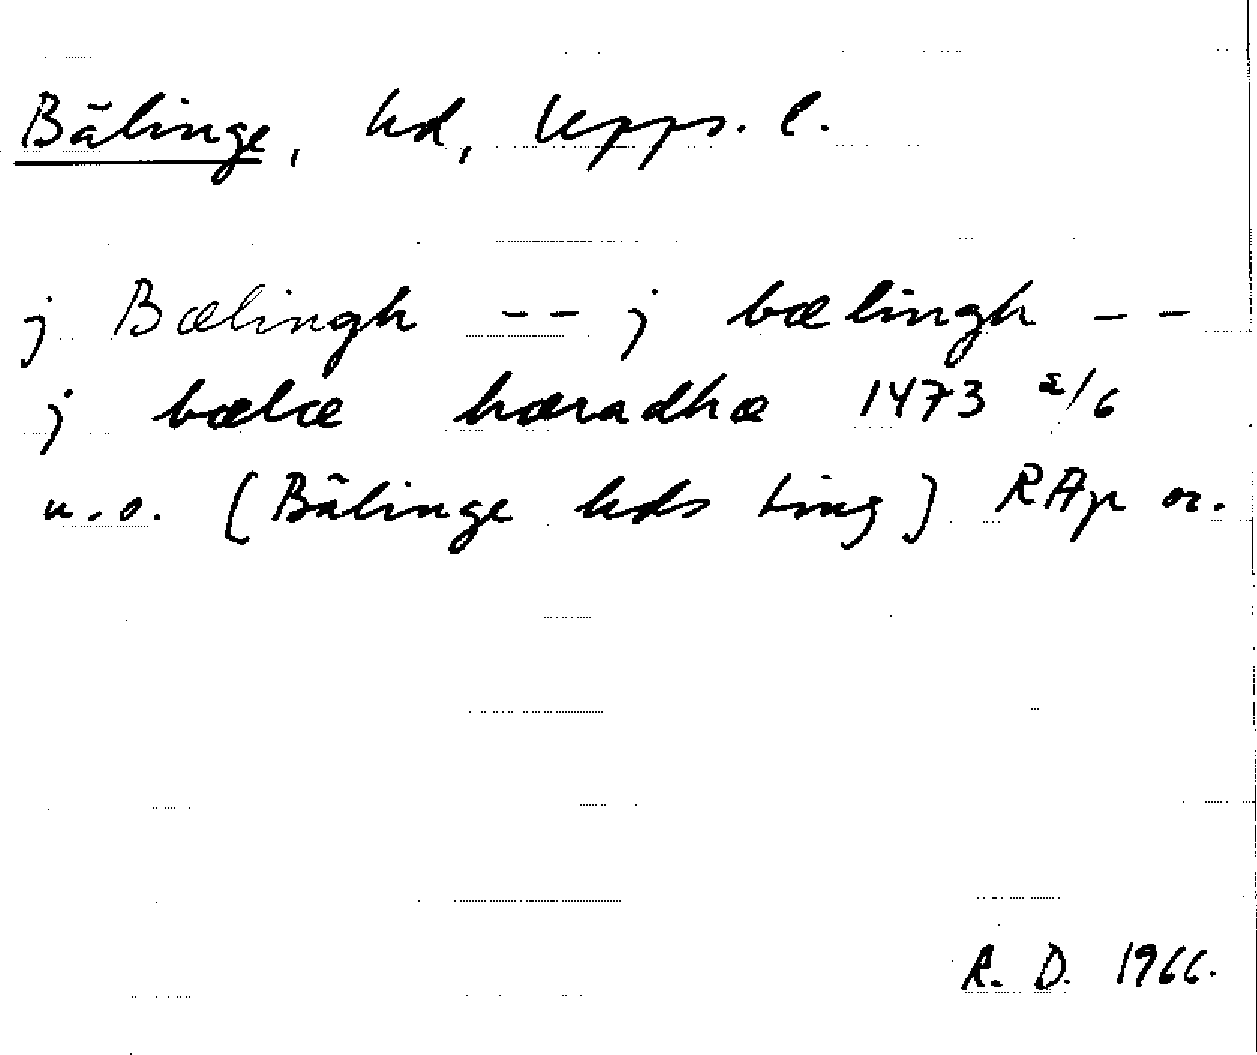 Bälinge, hd, Upps. l.
j Bælingh -- j bælingh --
j bælæ hæradhæ 1473 2/6
u.o. (Bälinge hds ting) RAp or.
R. D. 1966.